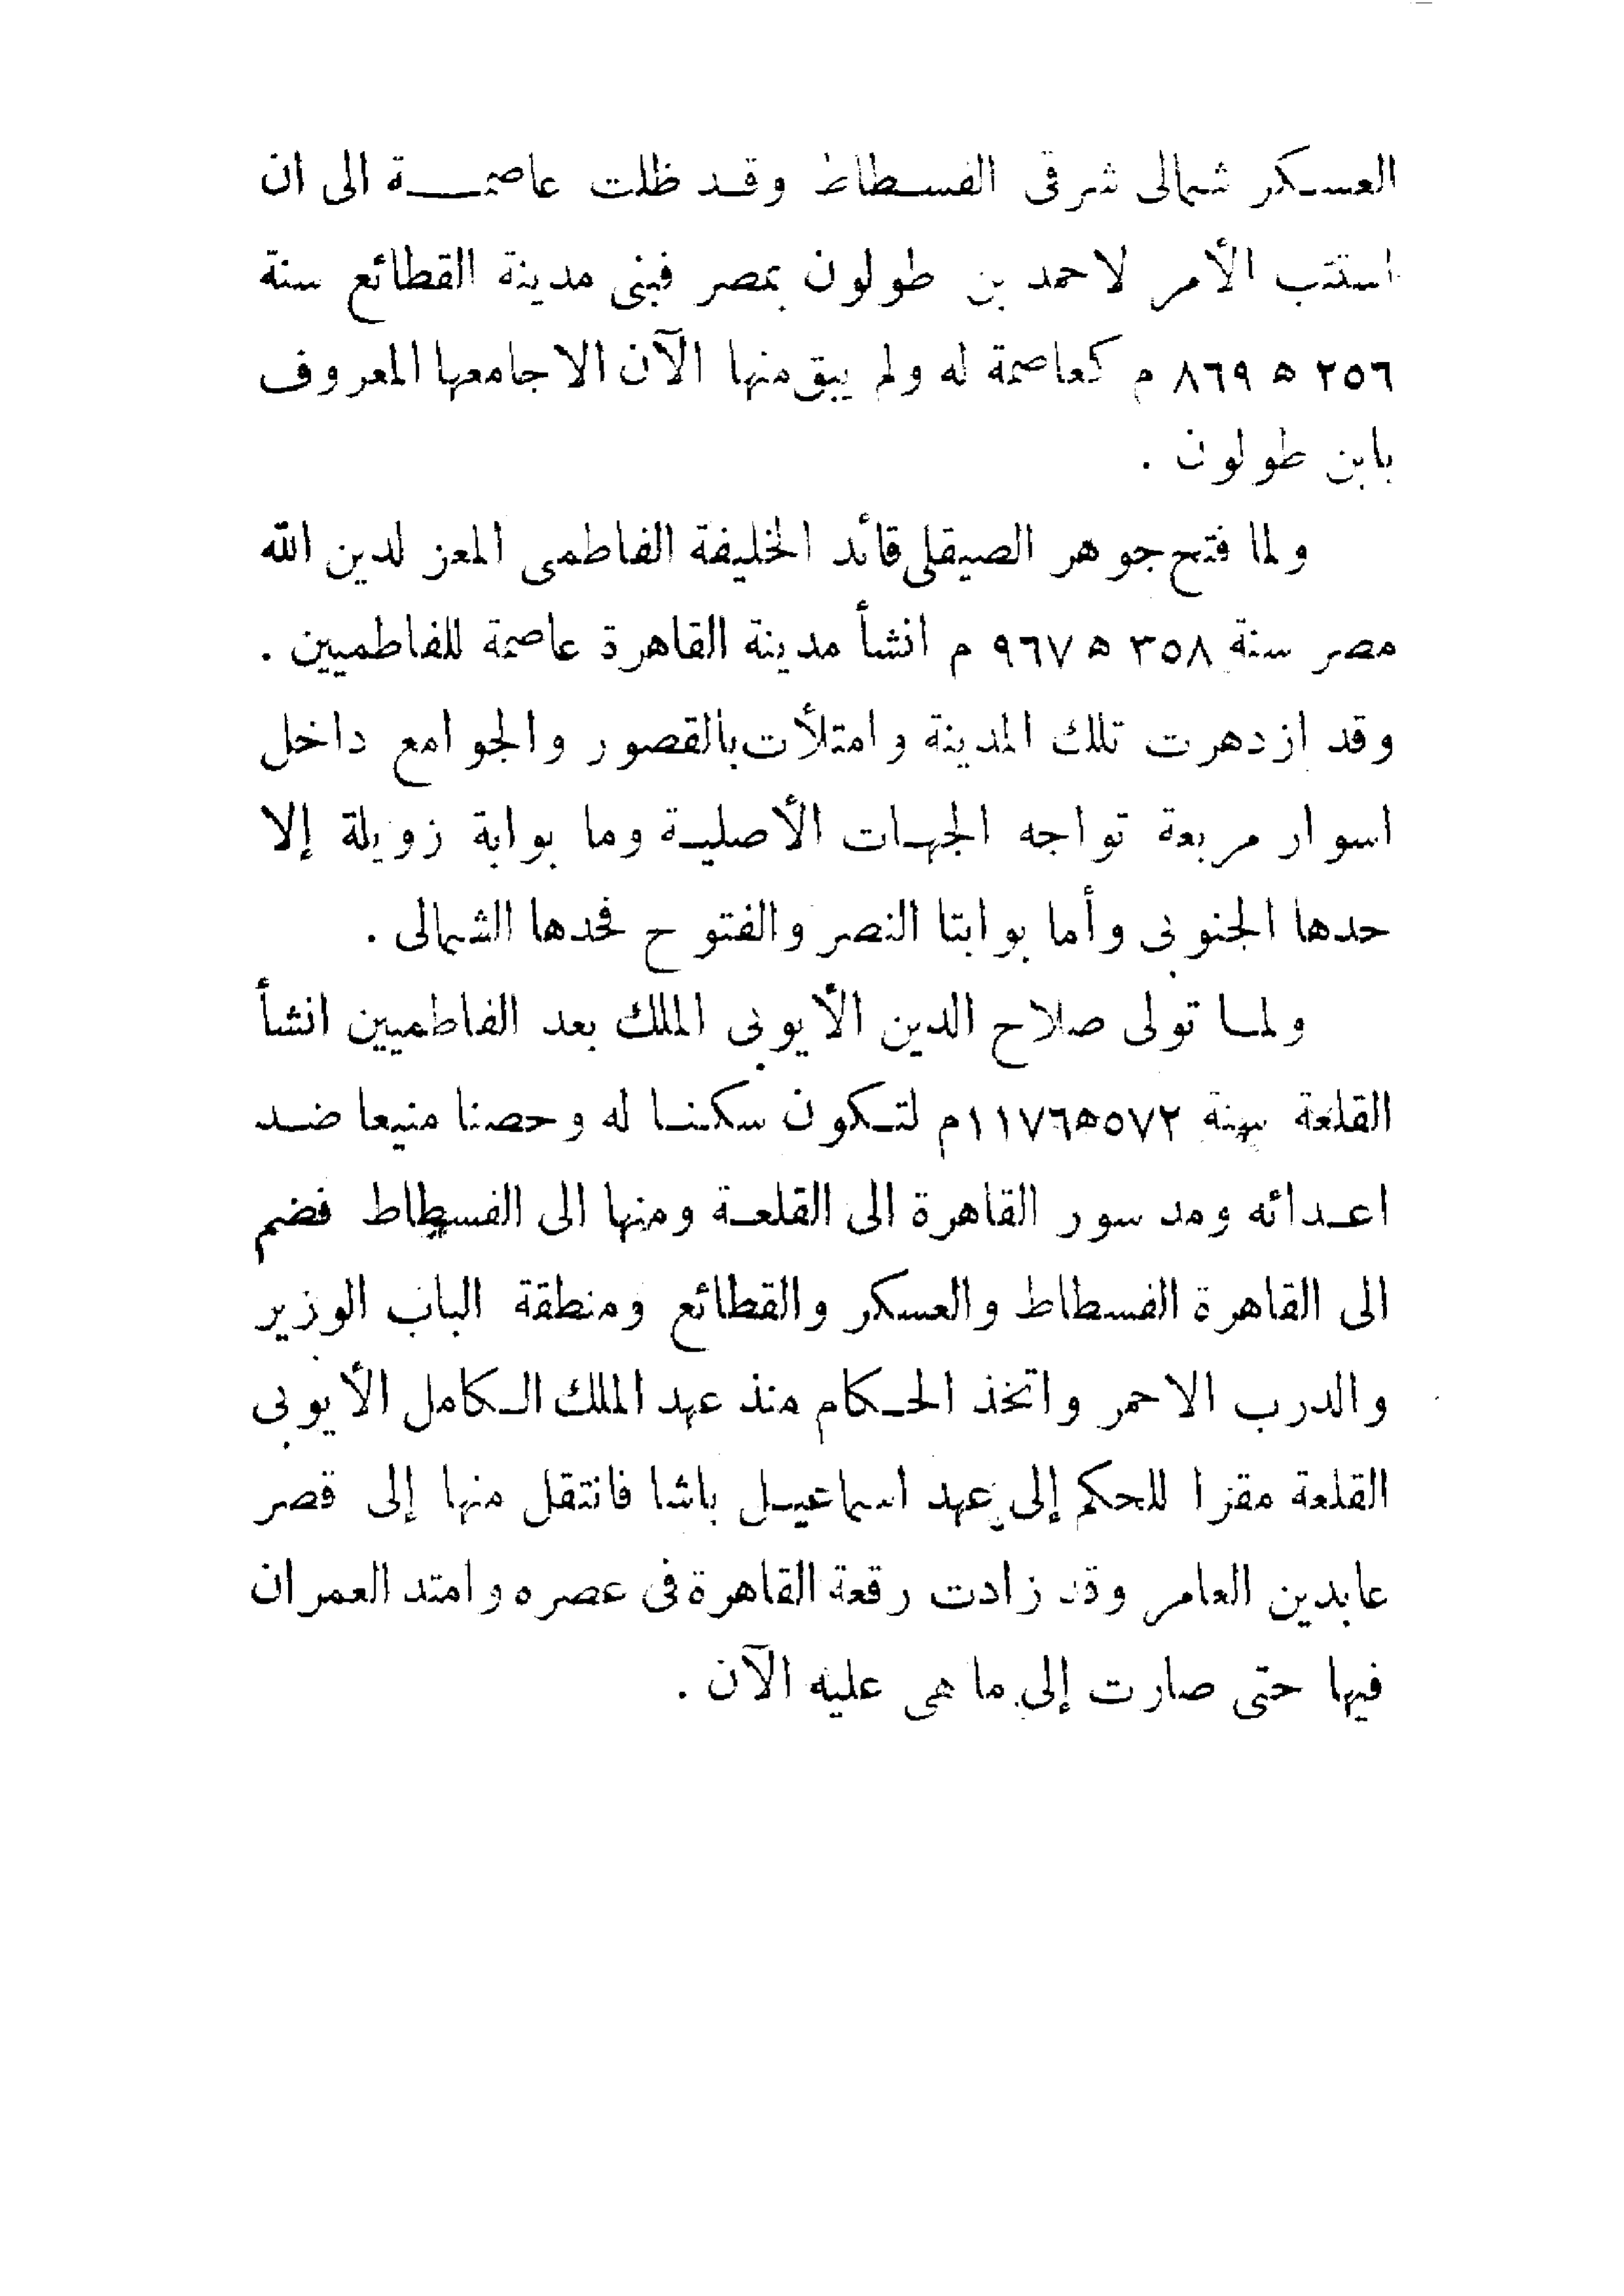 العسكر شمالى شرقى الفسطاط وقد ظلت عاصمة الى ان
استتب الأمر لاحمد بن طولون بمصر فبنى مدينة القطائع سنة
٢٥٦ ه ٨٦٩ م كعاصمة له ولم يبق منها الآن الا جامعها المعروف
بابن طولون .
ولما فتح جوهر الصيقلى قائد الخليفة الفاطمى المعز لدين الله
مصر سنة ٣٥٨ ه ٩٦٧ م انشأ مدينة القاهرة عاصمة للفاطميين .
وقد ازدهرت تلك المدينة وامتلأت بالقصور والجوامع داخل
اسوار مربعة تواجه الجهات الأصلية وما بوابة زويلة إلا
حدها الجنوبى وأما بوابتا النصر والفتوح فحدها الشمالى .
ولما تولى صلاح الدين الأيوبى الملك بعد الفاطميين انشأ
القلعة سنة ٥٧٢ه١١٧٦م لتكون سكنا له وحصنا منيعا ضد
اعدائه ومد سور القاهرة الى القلعة ومنها الى الفسطاط فضم
الى القاهرة الفسطاط والعسكر والقطائع ومنطقة الباب الوزير
والدرب الاحمر واتخذ الحكام منذ عهد الملك الكامل الأيوبى
القلعة مقرا للحكم إلى عهد اسماعيل باشا فانتقل منها إلى قصر
عابدين العامر وقد زادت رقعة القاهرة فى عصره وامتد العمران
فيها حتى صارت إلى ما هى عليه الآن .